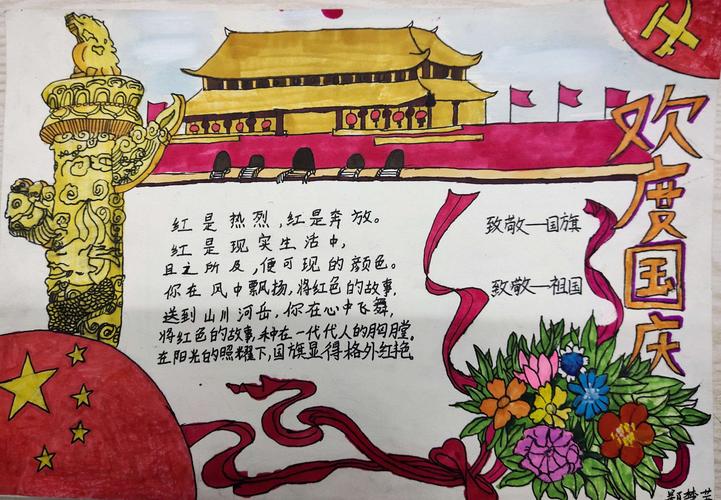 欢度国庆
红是热烈,红是奔放。
红是现实生活中,
且之所及,便可现的颜色。
你在风中飘扬,将红色的故事,
送到山川河岳,你在心中飞舞,
将红色的故事,种在一代代人的胸膛。
在阳光的照耀下,国旗显得格外红艳。
致敬一国旗
致敬一祖国